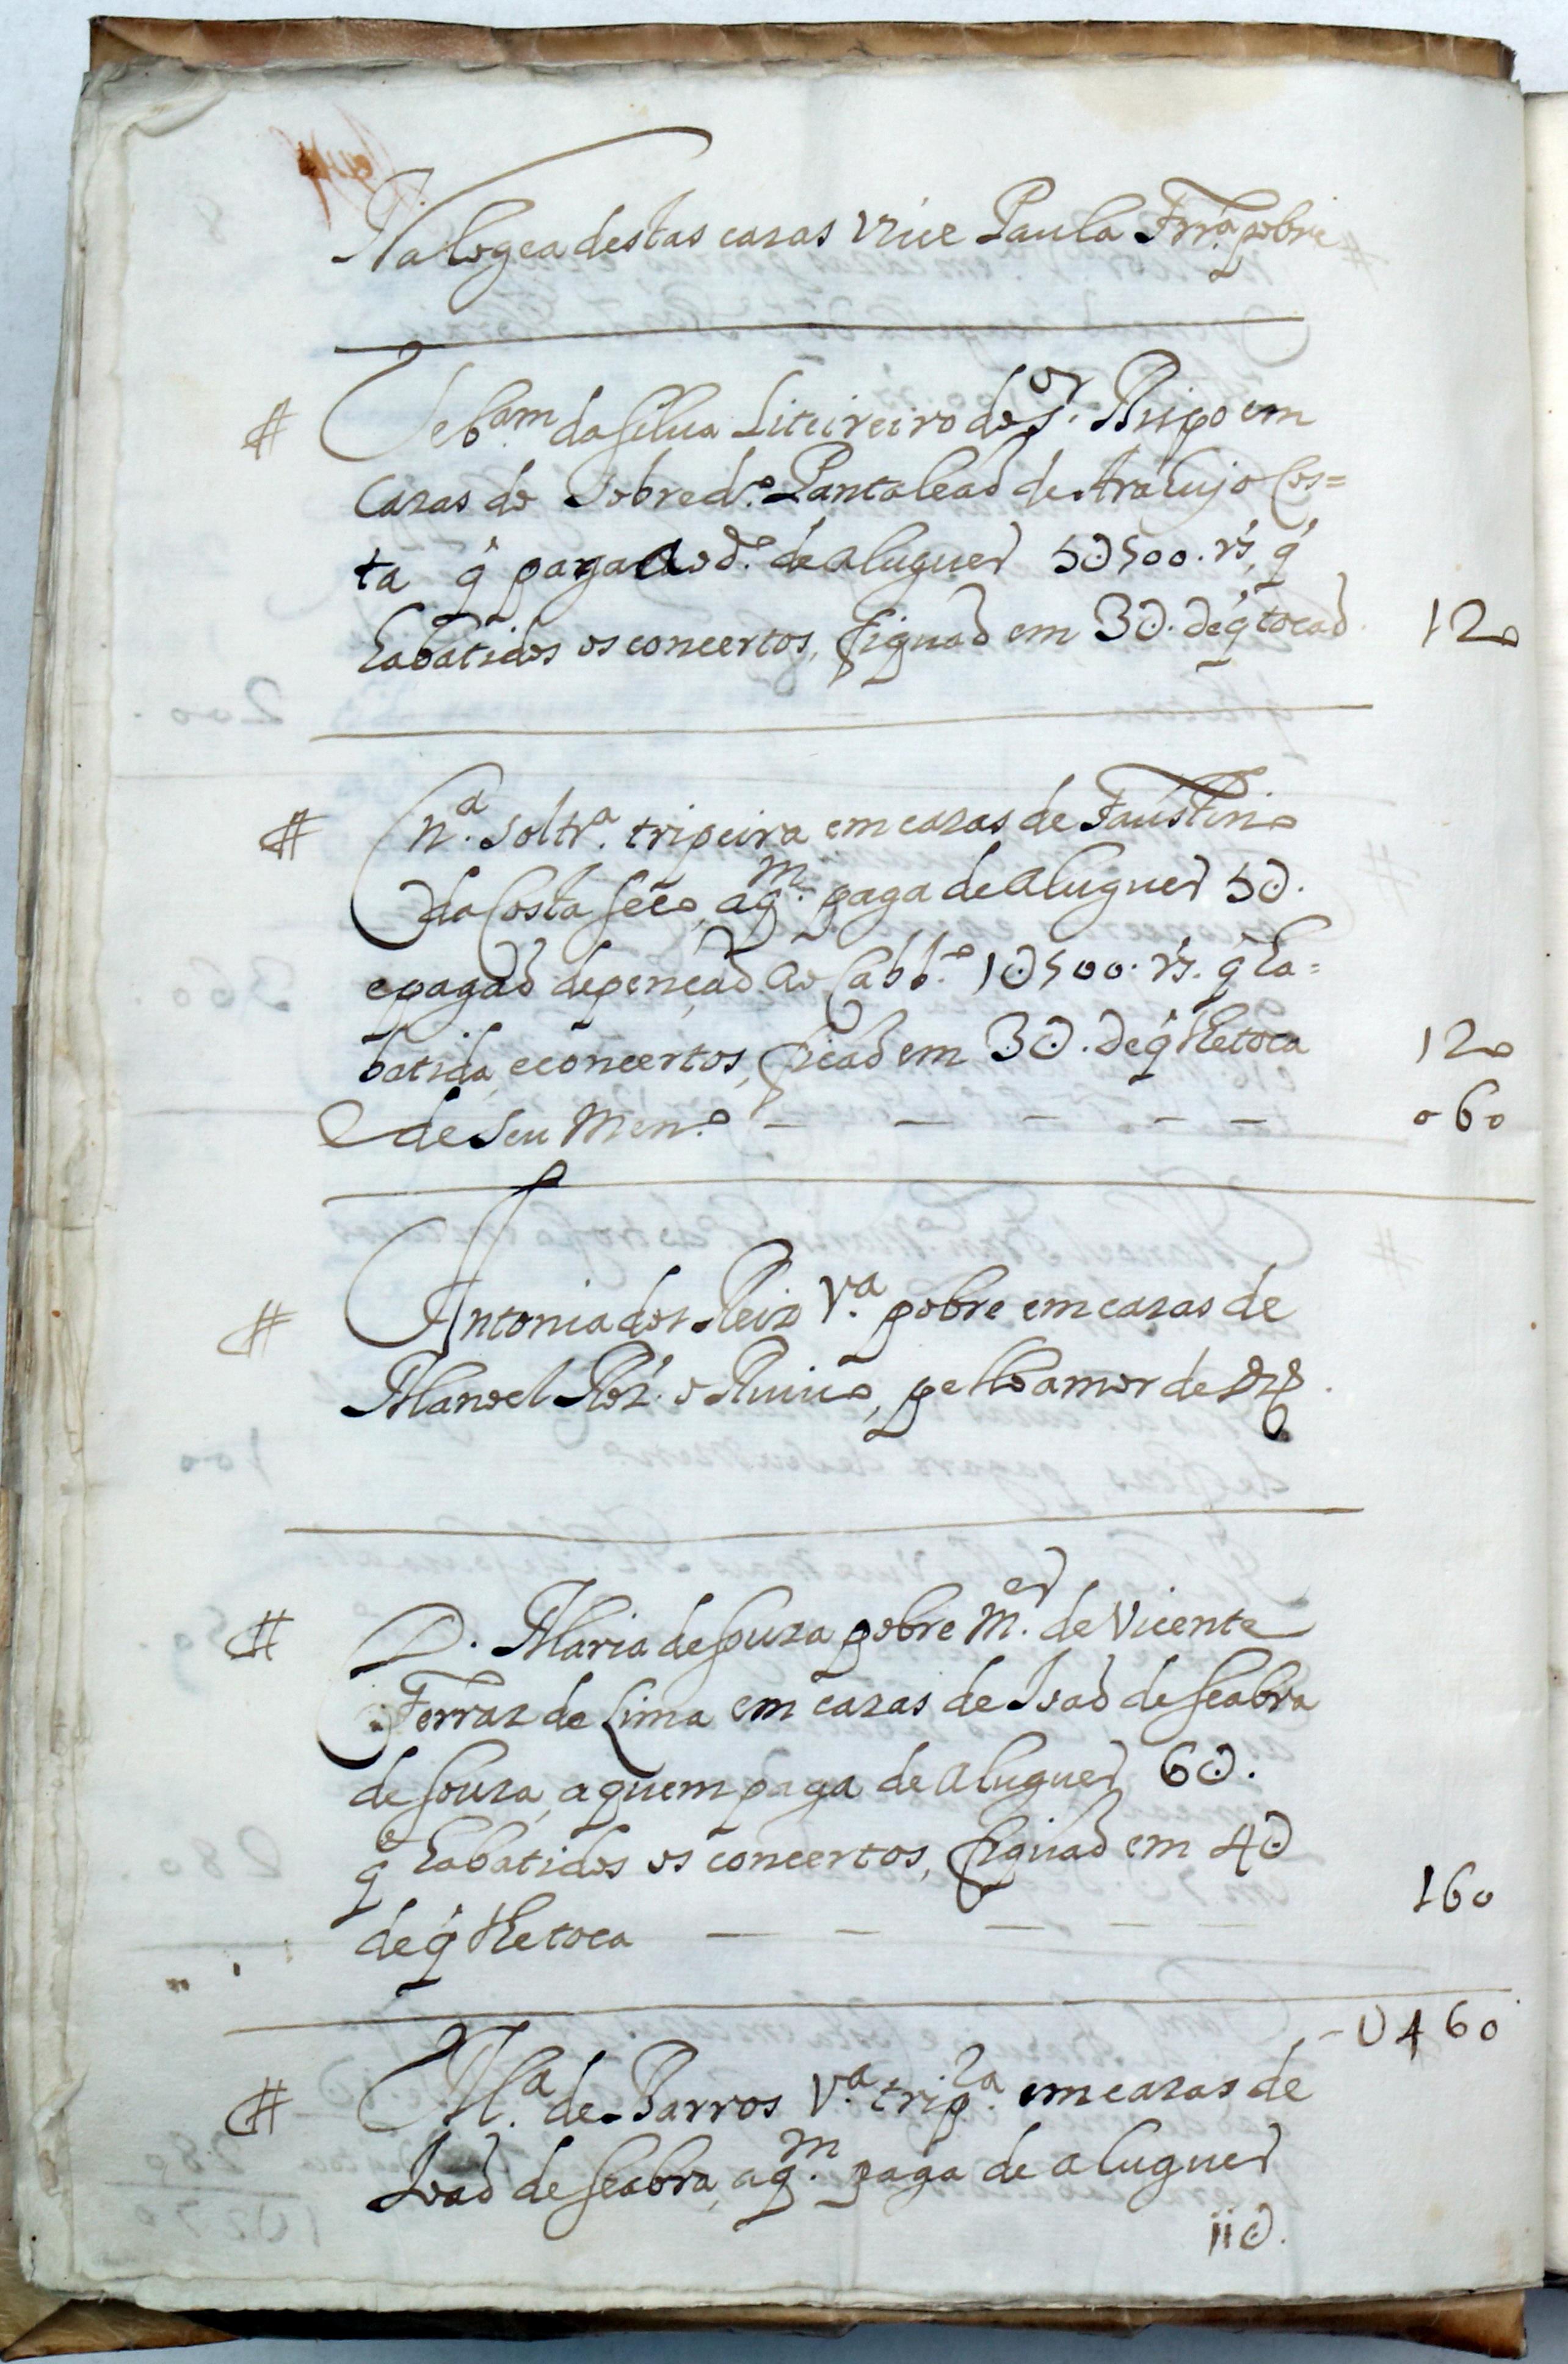 Na logea destas cazas viue Paula Frr.ª pobre
# Seb.am da Silua Liteireiro do S.or Bispo em
cazas do Sobred.º Pantaleaõ de Araujo Cos=
ta q́ paga ao d.º de aluguer 5∂500. rs, q́
Eabatidos os concertos, fiquaõ em 3∂. de q́ tocaõ 120
# C n.ª soltr.ª tripeira em cazas de Faustino
da Costa seco, a q.m paga de aluguer 5∂.
e pagaõ de pençaõ Ao Cabb.º 1∂500. rs. q́ Ea=
batida, e concertos, ficaõ em 3∂. de q́ lhe toca 120
E de seu Men.º — — — — — 060
# Antonia dos Reis V.ª pobre em cazas de
Manoel Roiz. o Ruiuo, pello amor de Ds.
# D. Maria de Souza pobre m.er de Vicente
Ferraz de Lima em cazas de Joaõ de Seabra
de Souza, a quem paga de aluguer 6∂.
q́ Eabatidos os concertos, fiquaõ em 4∂
de q́ lhe toca — — — — 160
- U460
# M.ª de Barros V.ª trip.ra em cazas de
Joaõ de Seabra, a q.m paga de aluguer
ii∂.